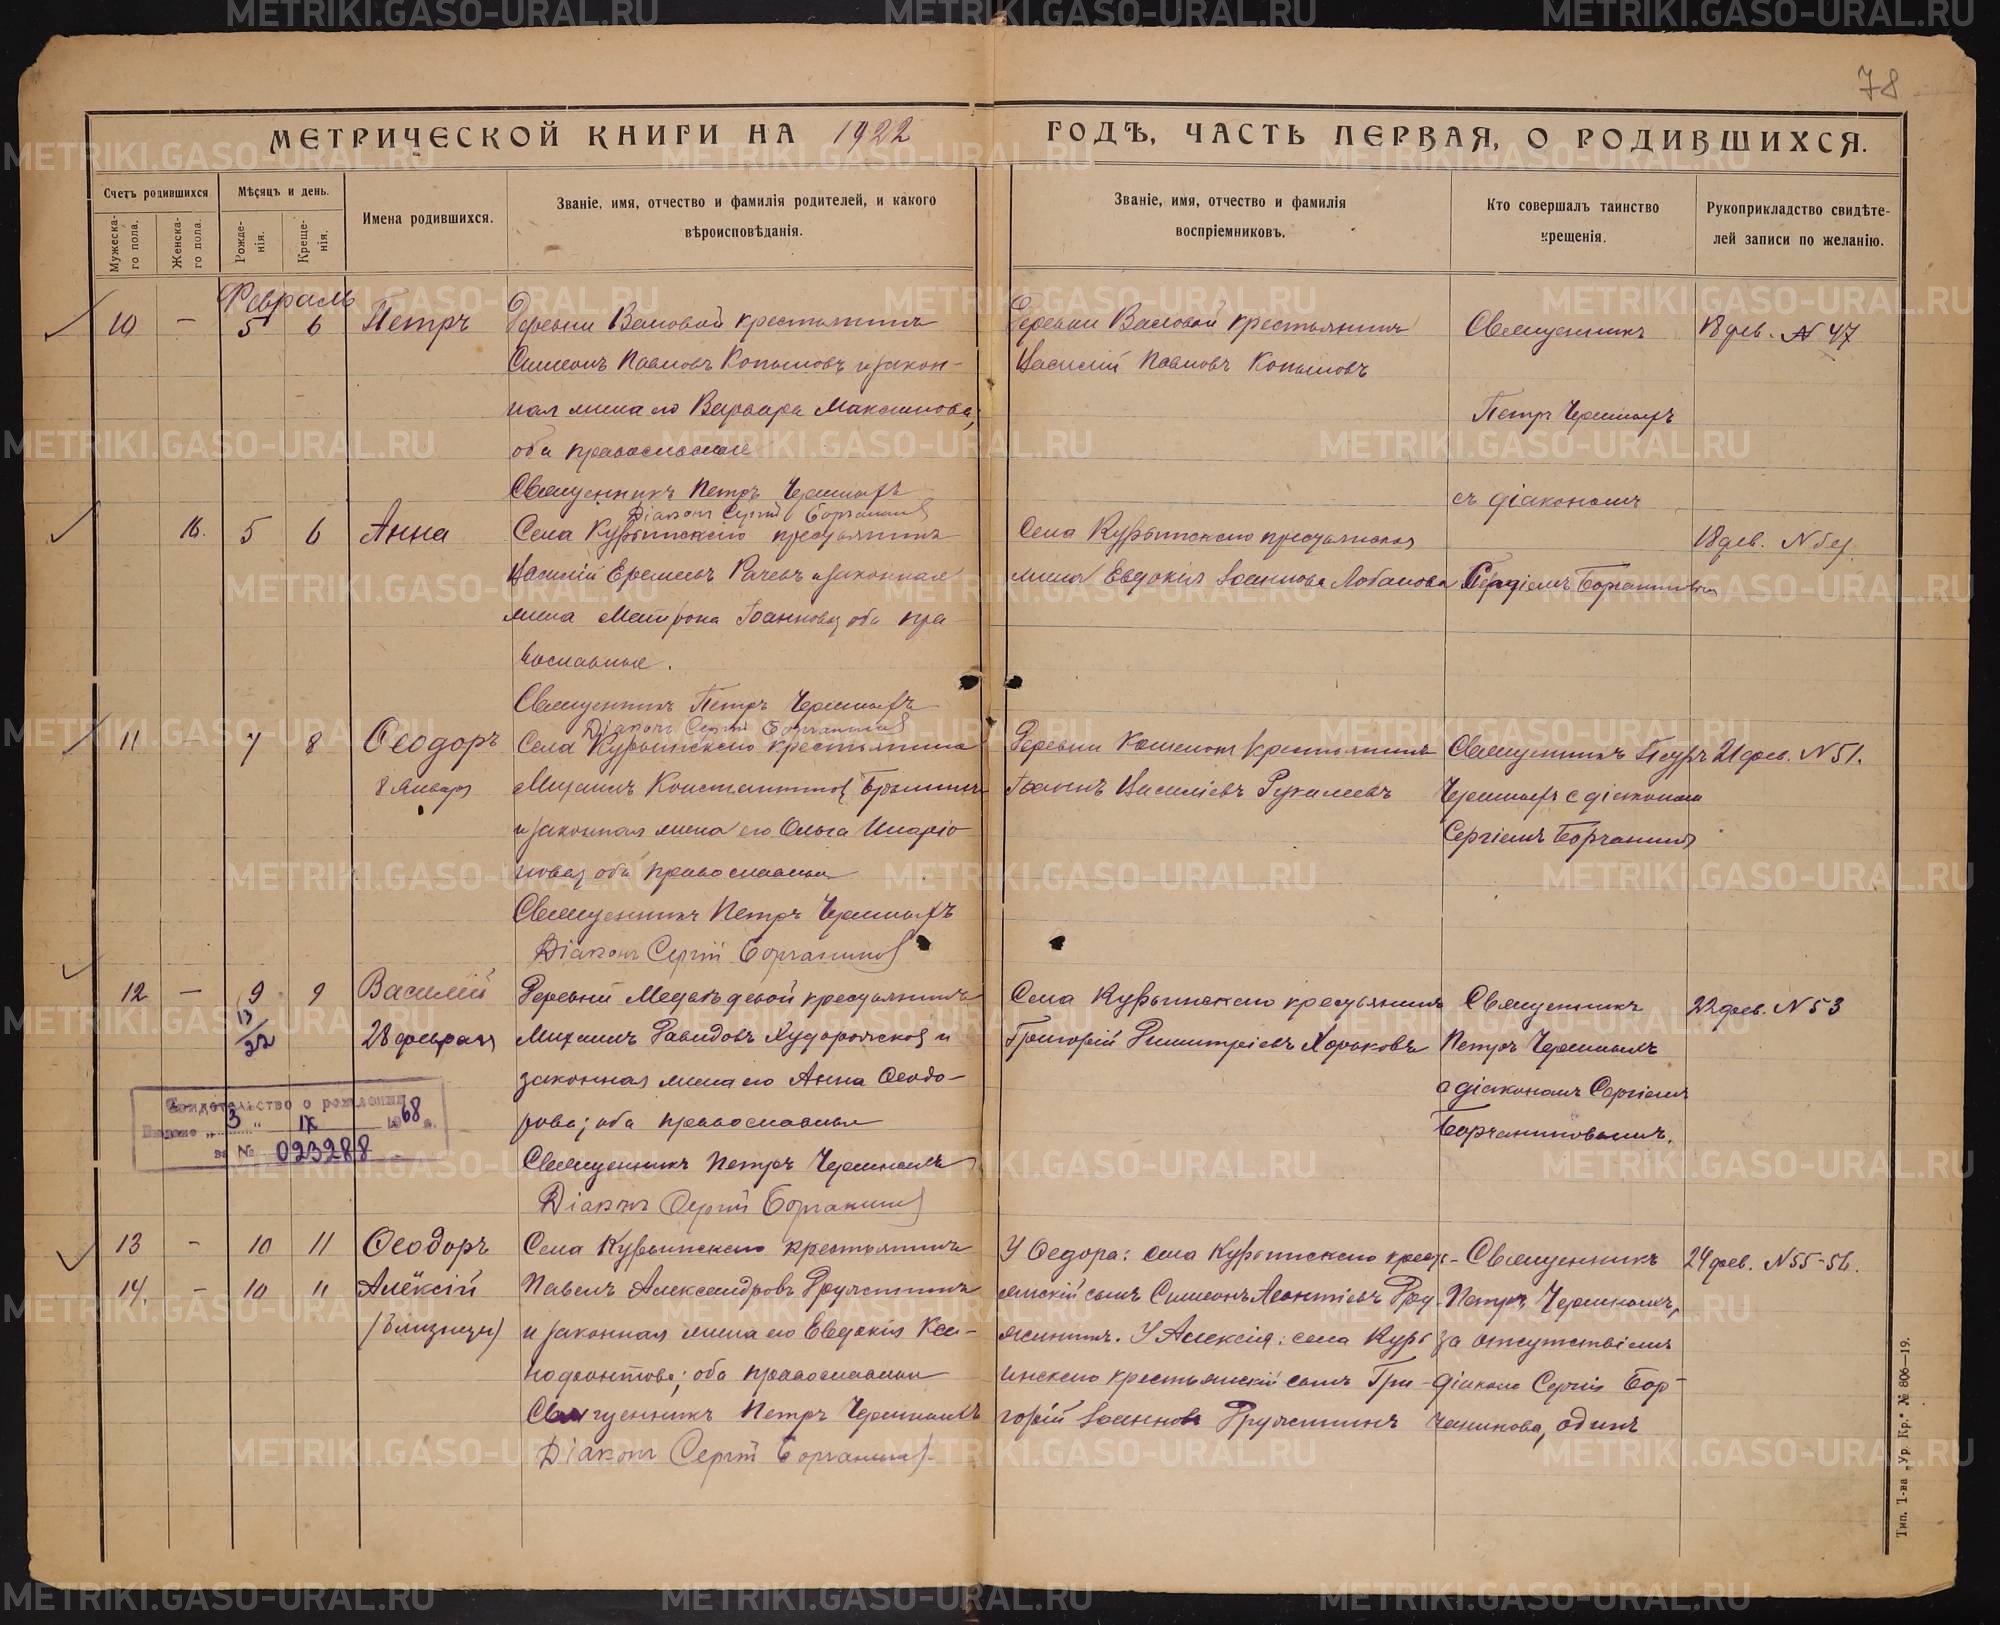 78
МЕТРИЧЕСКОЙ КНИГИ НА 1922
ГОДЪ, ЧАСТЬ ПЕРВАЯ, О РОДИВШИХСЯ.
Счетъ родившихся
Мѣсяцъ и день.
Имена родившихся.
Званіе, имя, отчество и фамилія родителей, и какого
вѣроисповѣданія.
Званіе, имя, отчество и фамилія
воспріемниковъ.
Кто совершалъ таинство
крещенія.
Рукоприкладство свидѣте-
лей записи по желанію.
Мужеска-
го пола.
Женска-
го пола.
Рожде-
нія.
Креще-
нія.
Февраль
10 — 5 6 Петръ
Деревни Валовой крестьянинъ
Симеонъ Павловъ Копыловъ и закон-
ная жена его Варвара Максимова,
оба православные
Священникъ Петръ
Діаконъ Сергій
Деревни Валовой крестьянинъ
Василій Павловъ Копыловъ
Священникъ
Петръ
съ діакономъ
Сергіемъ
18 фев. N 47
16. 5 6 Анна
Села Курьинскаго крестьянинъ
Василій Еремеевъ и законная
жена Матрона Іоаннова, оба пра-
вославные.
Священникъ Петръ
Діаконъ Сергій
Села Курьинскаго крестьянская
жена Евдокія Іоаннова Лобанова
18 фев.
11 — 7 8 Ѳеодоръ
8 Января
Села Курьинскаго крестьянинъ
Михаилъ Константиновъ
и законная жена его Ольга Иларіо-
нова, оба православные
Священникъ Петръ
Діаконъ Сергій
Деревни крестьянинъ
Іоаннъ Василіевъ
Священникъ Петръ
с діакономъ
Сергіемъ
21 фев. N 51.
12 — 9 9 Василій
13/22
28 февраля
Деревни Медвѣдевой крестьянинъ
Михаилъ Давидовъ и
законная жена его Анна Ѳеодо-
рова; оба православные
Священникъ Петръ
Діаконъ Сергій
Села Курьинскаго крестьянинъ
Григорій Димитріевъ Хорьковъ
Священникъ
Петръ
с діакономъ Сергіемъ
Борчаниновымъ.
22 фев. N 53
Свидетельство о рождении
Выдано „ 3 “ IX 1968 г.
за № 023288
13 - 10 11 Ѳеодоръ
14. - 10 11 Алексій
/близнецы/
Села Курьинскаго крестьянинъ
Павелъ Александровъ Дружининъ
и законная жена его Евдокія Ксе-
нофонтова; оба православные
Священникъ Петръ
Діаконъ Сергій
У Ѳедора: села Курьинскаго кресть-
янскій сынъ Симеонъ Леонтіевъ Дру-
жининъ. У Алексія: села Курь-
инскаго крестьянскій сынъ Гри-
горій Іоанновъ Дружининъ
Священникъ
Петръ
за отсутствіемъ
діакона Сергія Бор-
чанинова, одинъ
24 фев. N 55-56.
Тип. Т-ва „Ур. Кр.“ № 806—19.
METRIKI.GASO-URAL.RU